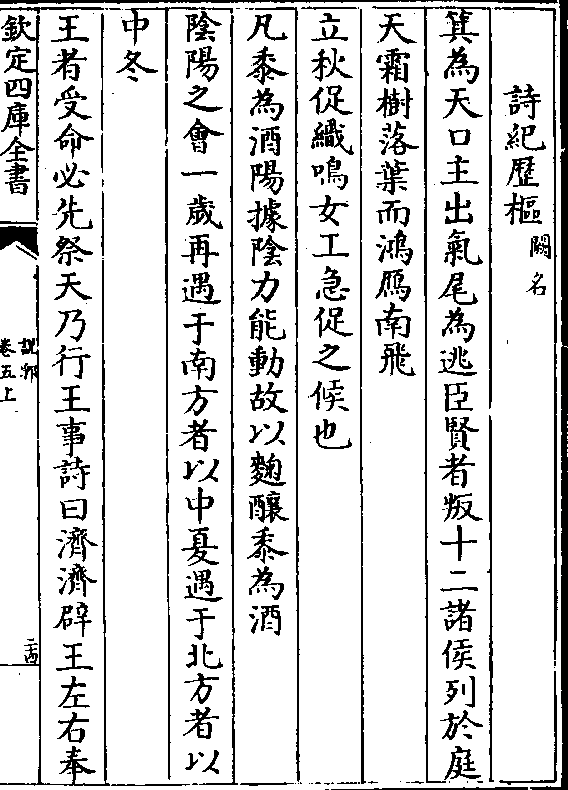 詩紀歴樞闕名
箕為天口主出氣尾為逃臣賢者叛十二諸侯列於庭
天霜樹落葉而鴻鴈南飛
立秋促織鳴女工急促之候也
凡黍為酒陽據陰力能動故以麴釀黍為酒
陰陽之會一歳再遇于南方者以中夏遇于北方者以
中冬
王者受命必先祭天乃行王事詩曰濟濟辟王左右奉
欽定四庫全書
説郛
卷五上
二五